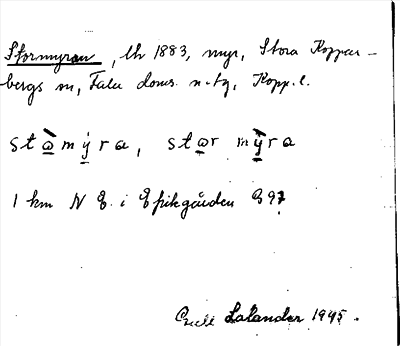 Stormyran, lh 1883, myr, Stora Koppar-
bergs sn, Falu doms. n. tg, Kopp. l.
stɷ̀mỳra, stɷr mỳra
1 km N E. i Epikgården G 97
Lalander 1945.